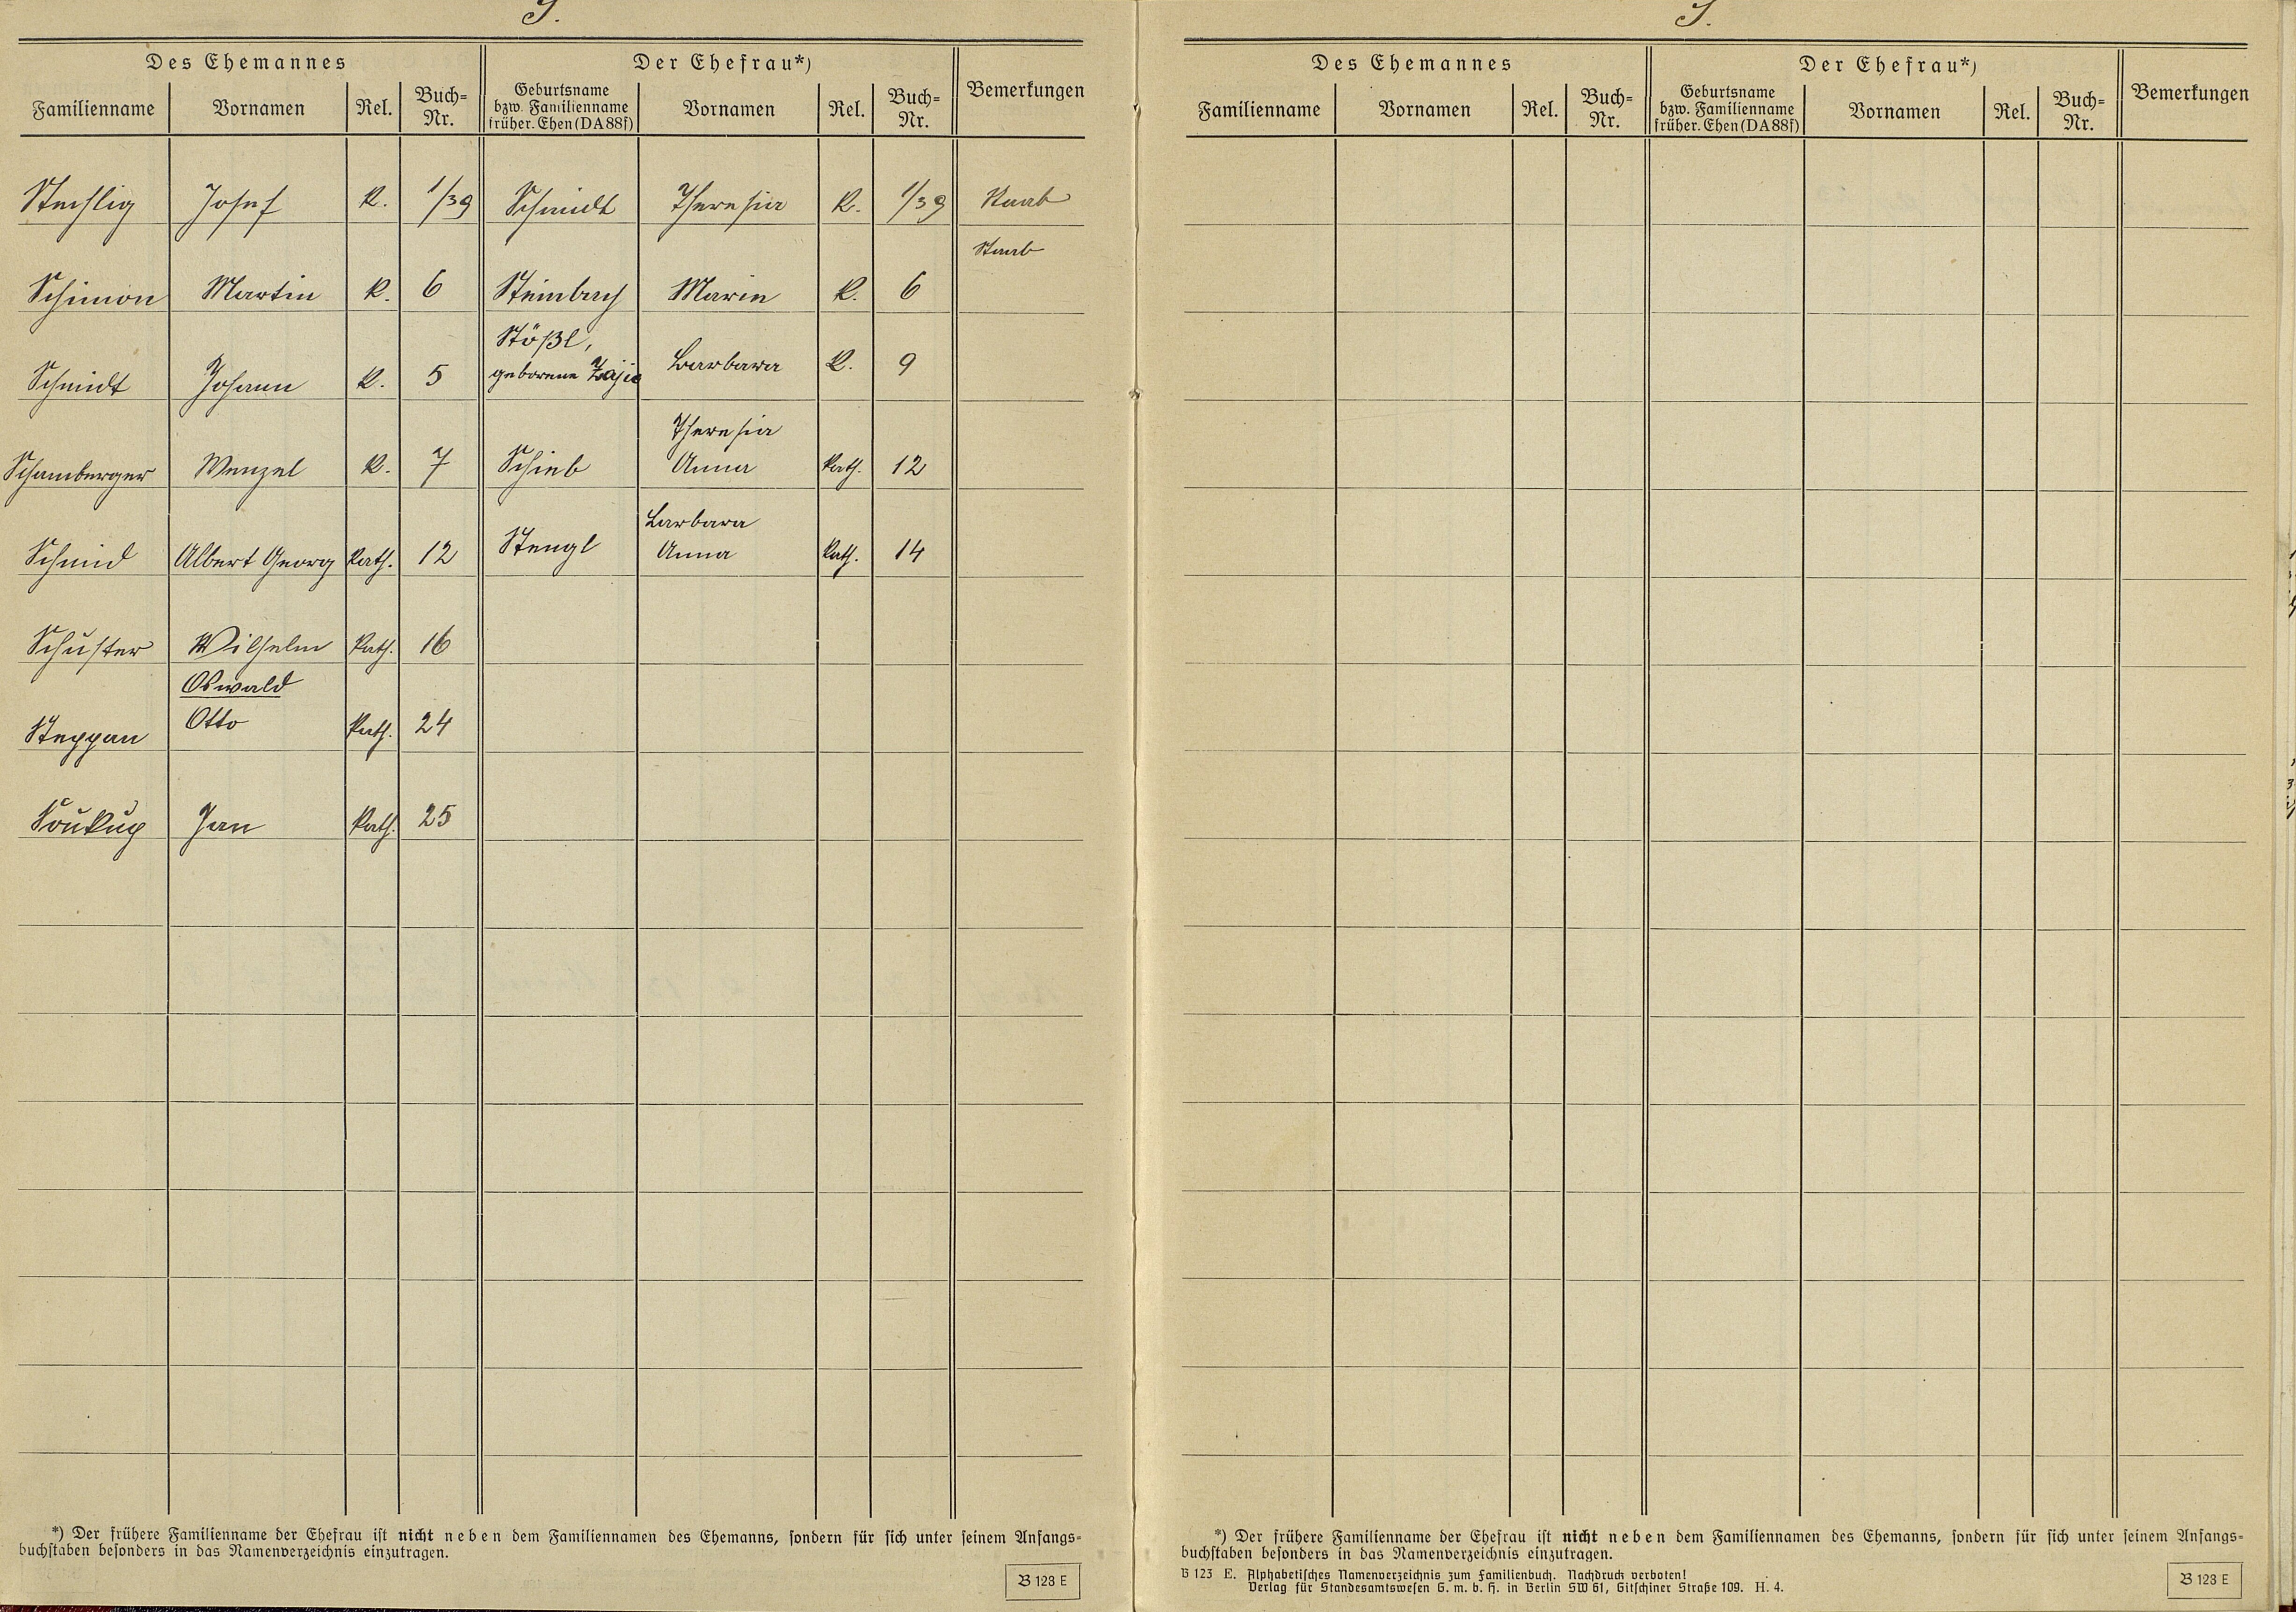 S.
Des Ehemannes Der Ehefrau*) Bemerkungen
Familienname Vornamen Rel. Buch-Nr. Geburtsname bzw. Familienname früher. Ehen (DA 88f) Vornamen Rel. Buch-Nr.
Josef K. 1/39 Schmidt Theresia K. 1/39 Staab
Staab
Schimon Martin K. 6 Steinbach Marie K. 6
Stößl,
Schmidt Johann K. 5 geborene Zajic Barbara K. 9
Theresia
Schamberger Wenzel K. 7 Schieb Anna Kath. 12
Barbara
Schmid Albert Georg Kath. 12 Stengl Anna Kath. 14
Schuster Wilhelm Kath. 16
Oswald
Steppan Otto Kath. 24
Soukup Jan Kath. 25
*) Der frühere Familienname der Ehefrau ist nicht neben dem Familiennamen des Ehemanns, sondern für sich unter seinem Anfangs-
buchstaben besonders in das Namenverzeichnis einzutragen.
B 123 E
S.
Des Ehemannes Der Ehefrau*) Bemerkungen
Familienname Vornamen Rel. Buch-Nr. Geburtsname bzw. Familienname früher. Ehen (DA 88f) Vornamen Rel. Buch-Nr.
*) Der frühere Familienname der Ehefrau ist nicht neben dem Familiennamen des Ehemanns, sondern für sich unter seinem Anfangs-
buchstaben besonders in das Namenverzeichnis einzutragen.
B 123 E. Alphabetisches Namenverzeichnis zum Familienbuch. Nachdruck verboten!
Verlag für Standesamtswesen G. m. b. H. in Berlin SW 61, Gitschiner Straße 109. H. 4.
B 123 E